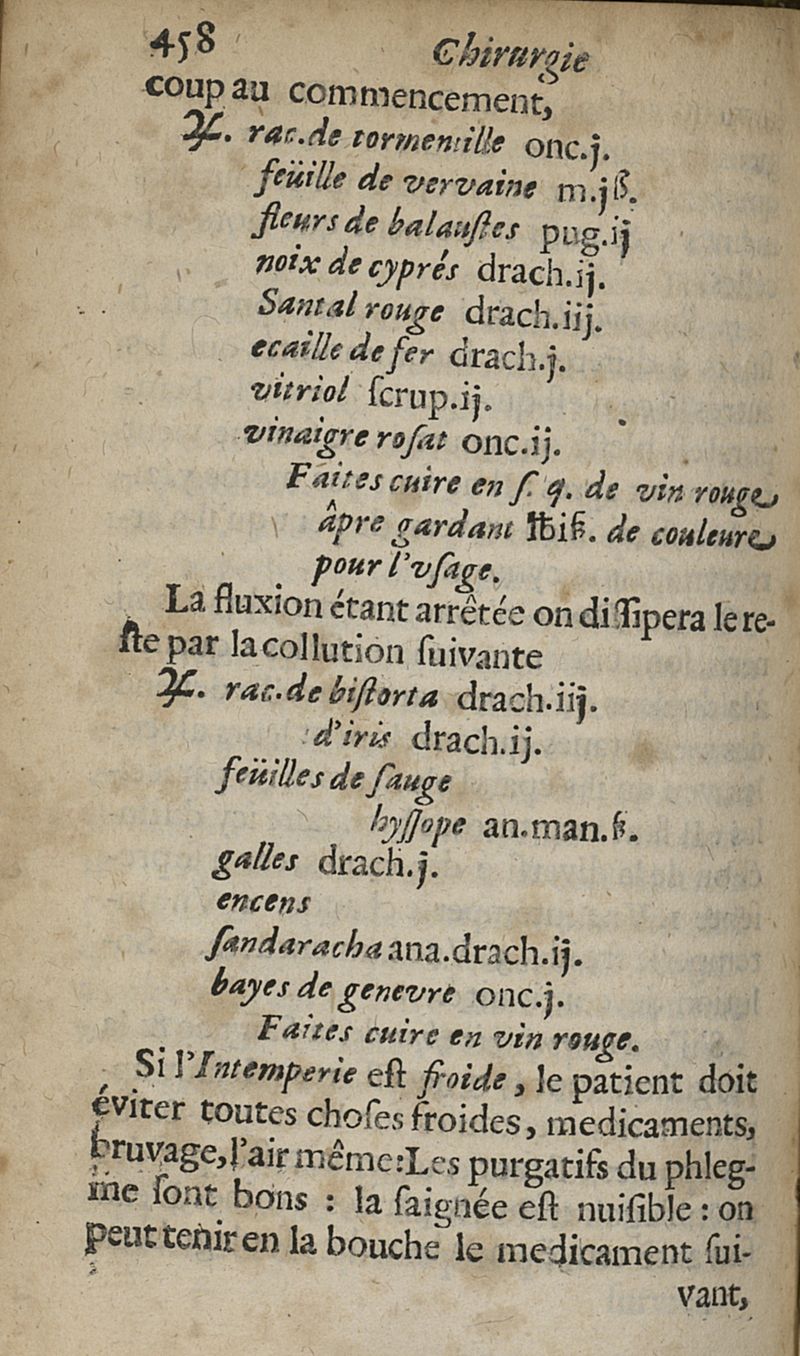 458 Chirurgie
coup au commencement,
℞. rac.de tormentille onc.j.
feüille de vervaine m.jß.
fleurs de balauſtes pug.ij
noix de cyprés drach.ij.
Santal rouge drach.iij.
ecaille de fer drach.j.
vitriol ſcrup.ij.
vinaigre roſat onc.ij.
Faites cuire en ſ. q. de vin rouge
âpre gardant ℔iß. de couleure
pour l'vſage.
La fluxion étant arrêtée on diſſipera le re-
ſte par la collution ſuivante
℞. rac.de biſtorta drach.iij.
d'iris drach.ij.
feüilles de ſauge
hyſſope an.man.ß.
galles drach.j.
encens
ſandaracha ana.drach.ij.
bayes de genevre onc.j.
Faites cuire en vin rouge.
Si l'Intemperie eſt froide, le patient doit
éviter toutes choſes froides, medicaments,
bruvage, l'air même: Les purgatifs du phleg-
me ſont bons : la ſaignée eſt nuiſible : on
peut tenir en la bouche le medicament ſui-
vant,